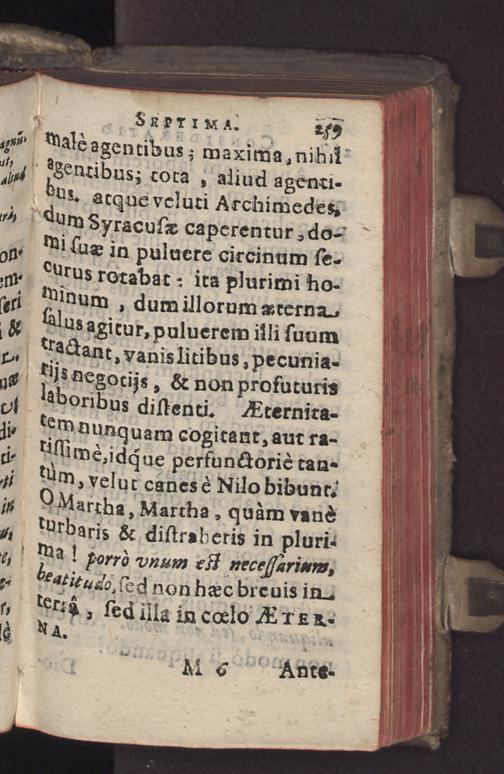 SEPTIMA. 259
malè agentibus; maxima, nihil
agentibus; tota, aliud agenti-
bus. atque veluti Archimedes,
dum Syracusæ caperentur, do-
mi suæ in puluere circinum se-
curus rotabat: ita plurimi ho-
minum, dum illorum æterna
salus agitur, puluerem illi suum
tractant, vanis litibus, pecunia-
rijs negotijs, & non profuturis
laboribus distenti. Æternita-
tem nunquam cogitant, aut ra-
rissimè, idque perfunctoriè tan-
tùm, velut canes è Nilo bibunt.
O Martha, Martha, quàm vanè
turbaris & distraheris in pluri-
ma! porrò vnum est necessarium,
beatitudo, sed non hæc breuis in
terrâ, sed illa in cœlo ÆTER-
NA.
M 6 Ante-